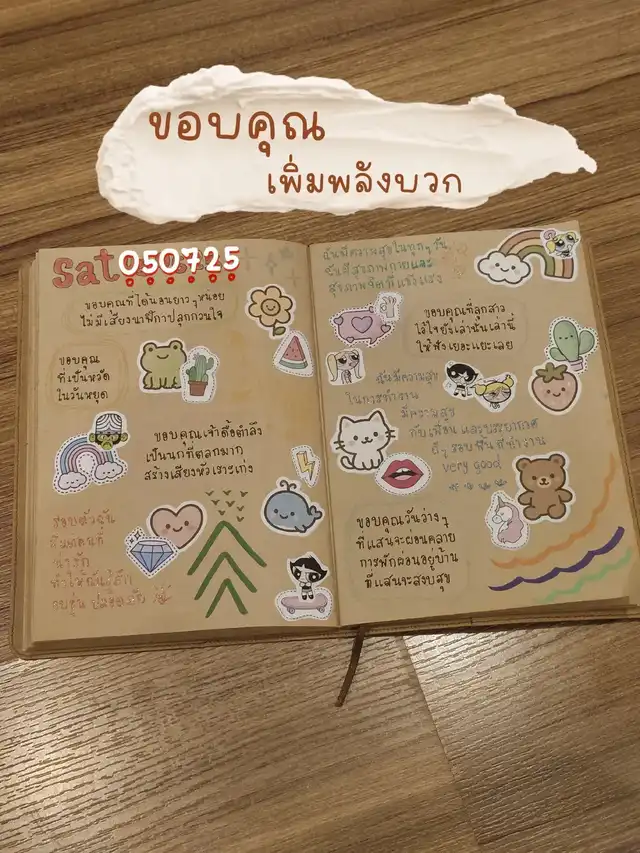 ขอบคุณ
เพิ่มพลังบวก
Sat 050725
ขอบคุณที่ได้นอนยาวๆหน่อย
ไม่มีเสียงนาฬิกาปลุกกวนใจ
ขอบคุณ
ที่เป็นหวัด
ในวันหยุด
ขอบคุณเจ้าดื้อตำลึง
เป็นนกที่ตลกมาก
สร้างเสียงหัวเราะเก่ง
ขอบตัวฉัน
น่ารัก
ทำให้ฉันรู้สึก
ฉันมีความสุขในทุกๆวัน
ฉันมีสุขภาพกายและ
สุขภาพจิตที่แข็งแรง
ขอบคุณที่ลูกสาว
เล่าให้ฟังเยอะแยะเลย
ฉันมีความสุข
ในการทำงาน
มีความสุข
กับเพื่อน และบรรยากาศ
ดีๆ รอบพื้นที่ทำงาน
very good
ขอบคุณวันว่างๆ
ที่แสนจะผ่อนคลาย
การพักผ่อนอยู่บ้าน
ที่แสนจะสงบสุข